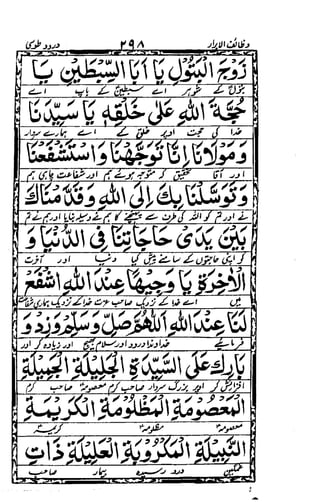 وظائف الابرار ۲۹۸ درود طوسی
زَوْجَ الْبَتُوْلِ يَا اَبَا السِّبْطَيْنِ يَا
بتول کے شوہر اے سبطین کے باپ اے
حُجَّةَ اللّٰهِ عَلٰى خَلْقِهٖ يَا سَيِّدَنَا
خدا کی حجت اوپر خلق کے اے ہمارے سردار
وَمَوْلَانَا اِنَّا تَوَجَّهْنَا وَاسْتَشْفَعْنَا
اور آقا تحقیق کہ متوجہ ہوئے ہم اور شفاعت چاہی ہم
وَتَوَسَّلْنَا بِكَ اِلَى اللّٰهِ وَقَدَّمْنَاكَ
نے اور تم کو اللہ کی طرف سے کا وسیلہ بنایا اور ہم نے تم
بَيْنَ يَدَىْ حَاجَاتِنَا فِى الدُّنْيَا وَ
کو اپنی حاجتوں کے سامنے پیش کیا دنیا اور آخرت
الْاٰخِرَةِ يَا وَجِيْهًا عِنْدَ اللّٰهِ اِشْفَعْ
میں اے خدا کے نزدیک صاحب عزت خدا کے نزدیک ہماری شفاعت
لَنَا عِنْدَ اللّٰهِ اَللّٰهُمَّ صَلِّ وَسَلِّمْ وَزِدْ وَ
فرمایئے خداوندا درود اور سلام بھیج اور زیادہ کر اور
بَارِكْ عَلَى السَّيِّدَةِ الْجَلِيْلَةِ الْجَمِيْلَةِ
افزائش کر اوپر بزرگ سردار صاحب کرم معصومہ صاحب کرم
الْمَعْصُوْمَةِ الْمَظْلُوْمَةِ الْكَرِيْمَةِ
معصومہ مظلومہ کریمہ
النَّبِيْلَةِ الْمَكْرُوْبَةِ الْعَلِيْلَةِ ذَاتِ
غمگین درد رسیدہ بیمار صاحب